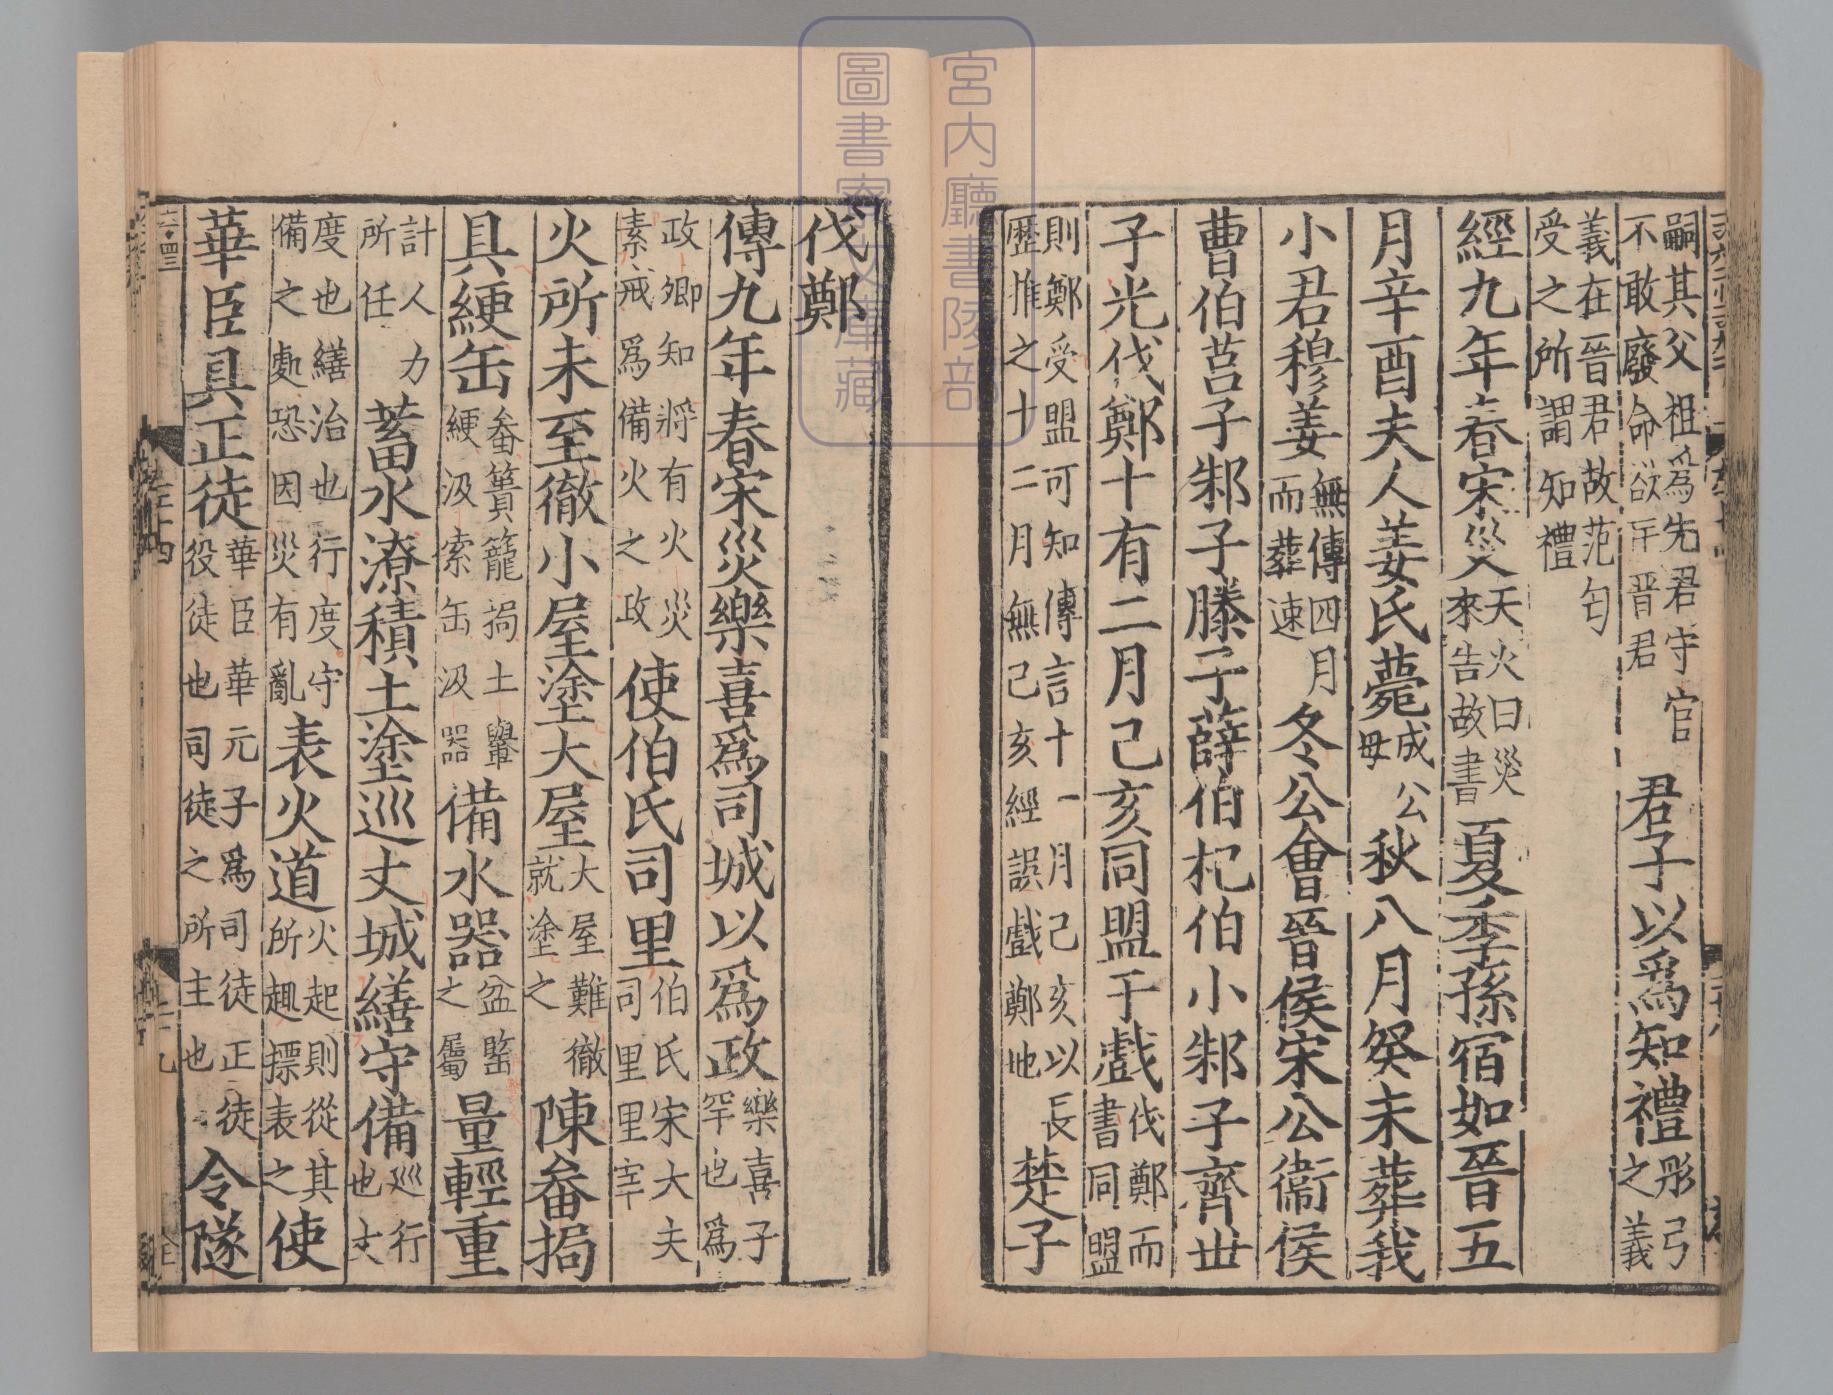 嗣其父祖爲先君守官
不敢廢命欲匡晉君
君子以爲知禮
彤弓
之義
義在晉君故范匄
受之所謂知禮
經九年春宋災
天火曰災
來告故書
夏季孫宿如晉五
月辛酉夫人姜氏薨
成公
母
秋八月癸未葬我
小君穆姜
無傳四月
而葬速
冬公會晉侯宋公衞侯
曹伯莒子邾子滕子薛伯杞伯小邾子齊世
子光伐鄭十有二月己亥同盟于戲
伐鄭而
書同盟
則鄭受盟可知傳言十一月己亥以長
歷推之十二月無己亥經誤戲鄭地
楚子
伐鄭
傳九年春宋災樂喜爲司城以爲政
樂喜子
罕也爲
政卿知將有火災
素戒爲備火之政
使伯氏司里
伯氏宋大夫
司里里宰
火所未至徹小屋塗大屋
大屋難徹
就塗之
陳畚挶
具綆缶
畚簣籠挶土轝
綆汲索缶汲器
備水器
盆䥐
之屬
量輕重
計人力
所任
蓄水潦積土塗巡丈城繕守備
巡行
也丈
度也繕治也行度守
備之處恐因災有亂
表火道
火起則從其
所趣摽表之
使
華臣具正徒
華臣華元子爲司徒正徒
役徒也司徒之所主也
令隧
宮内廳書陵部
圖書寮文庫藏